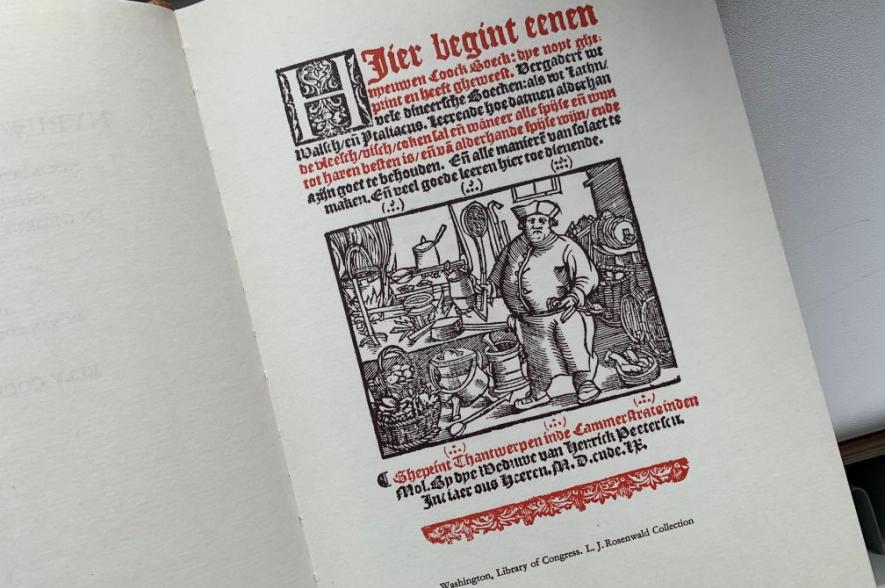 Hier begint eenen
nyeuwen Coock Boeck: dye noyt ghe-
print en heeft gheweest. Vergadert wt
vele diueersche Boecken: als wt Lathn/
Walsch/ eñ Ytaliacus. Leerende hoe datmen alderhan
de vleesch/visch/coken sal eñ wāneer alle spijse eñ wijn
tot haren besten is/ eñ vā alderhande spijse wijn/ ende
azijn goet te behouden. Eñ alle manierē van solaet te
maken. Eñ veel goede leeren hier toe dienende.
Ghepeint Thantwerpen inde Cammerstrate inden
Mol. By dye Weduwe van Henrick Peetersen.
Int iaer ons Heeren. M. D. ende. LX.
Washington, Library of Congress. L. J. Rosenwald Collection